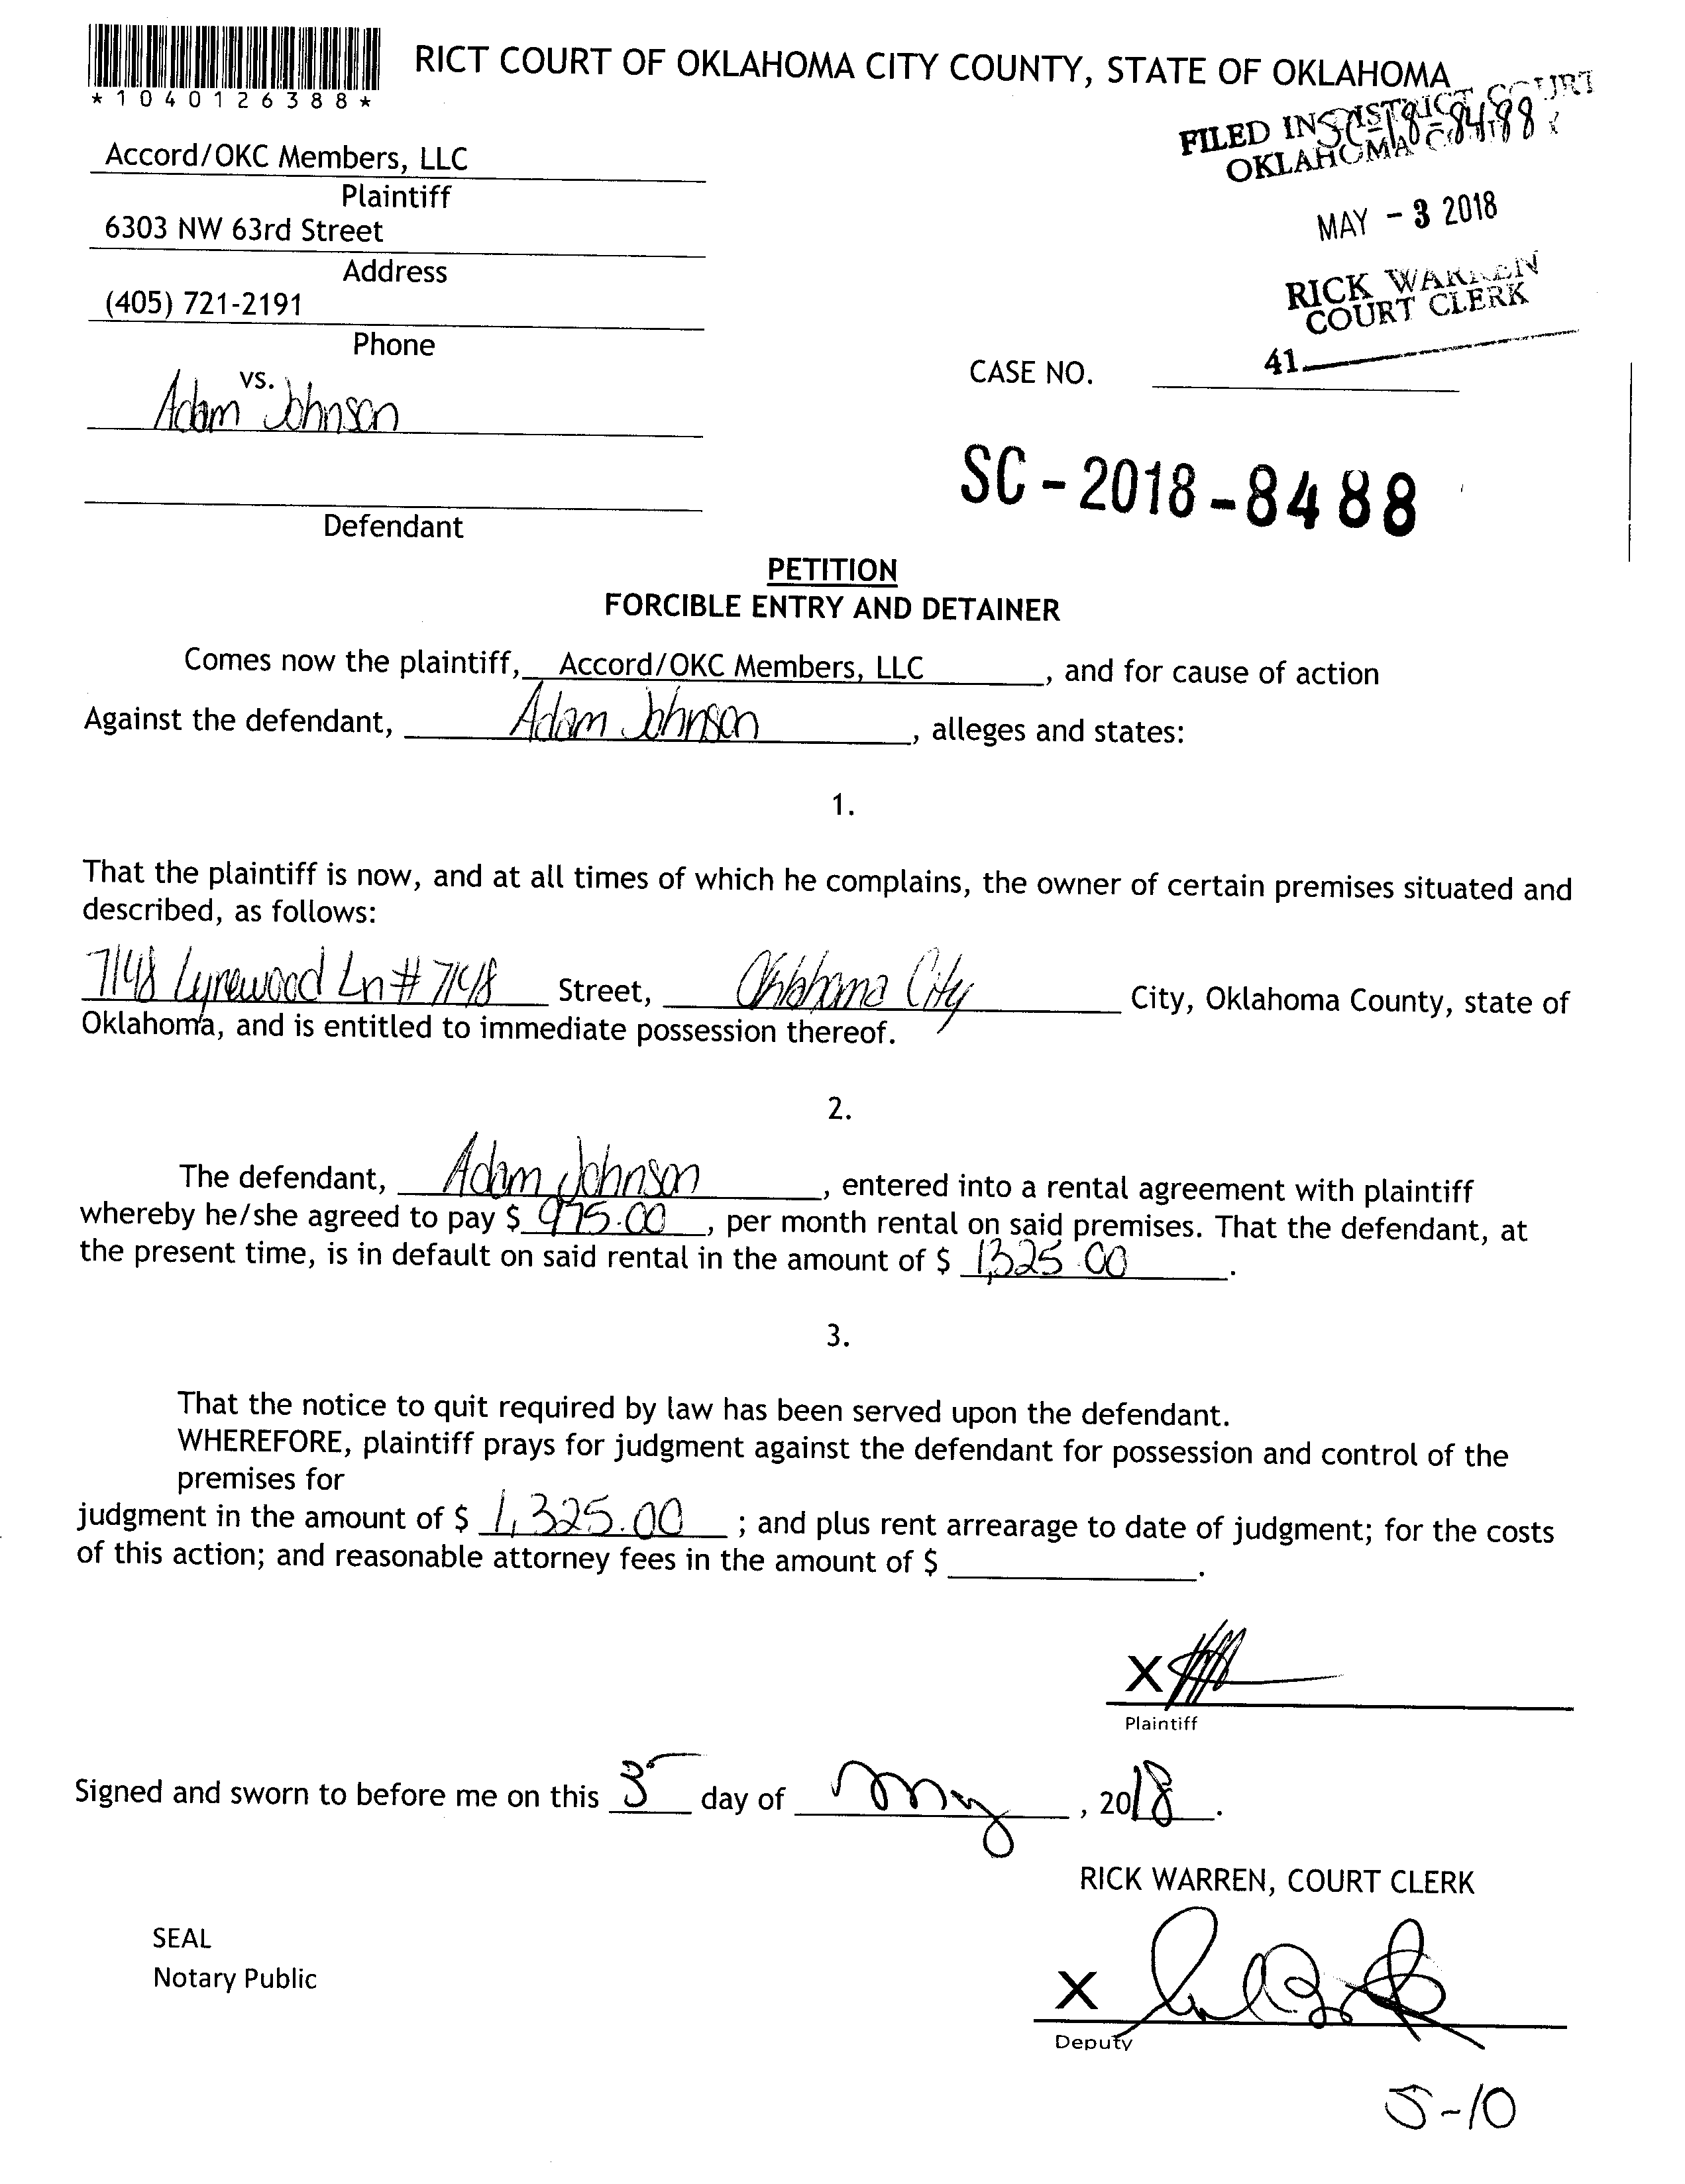 RICT COURT OF OKLAHOMA CITY COUNTY, STATE OF OKLAHOMA
*1040126388*
FILED IN DISTRICT COURT
OKLAHOMA COUNTY
SC-18-8488
Accord/OKC Members, LLC
Plaintiff
6303 NW 63rd Street
Address
(405) 721-2191
Phone
MAY - 3 2018
RICK WARREN
COURT CLERK
41
vs.
Adam Johnson
CASE NO.
SC - 2018 - 8488
Defendant
PETITION
FORCIBLE ENTRY AND DETAINER
Comes now the plaintiff, Accord/OKC Members, LLC, and for cause of action
Against the defendant, Adam Johnson, alleges and states:
1.
That the plaintiff is now, and at all times of which he complains, the owner of certain premises situated and
described, as follows:
7148 Lyrewood Ln # 7148 Street, Oklahoma City City, Oklahoma County, state of
Oklahoma, and is entitled to immediate possession thereof.
2.
The defendant, Adam Johnson, entered into a rental agreement with plaintiff
whereby he/she agreed to pay $ 975.00, per month rental on said premises. That the defendant, at
the present time, is in default on said rental in the amount of $ 1,325.00.
3.
That the notice to quit required by law has been served upon the defendant.
WHEREFORE, plaintiff prays for judgment against the defendant for possession and control of the
premises for
judgment in the amount of $ 1,325.00; and plus rent arrearage to date of judgment; for the costs
of this action; and reasonable attorney fees in the amount of $ .
X
Plaintiff
Signed and sworn to before me on this 3 day of May, 2018.
RICK WARREN, COURT CLERK
SEAL
Notary Public
X
Deputy
5-10